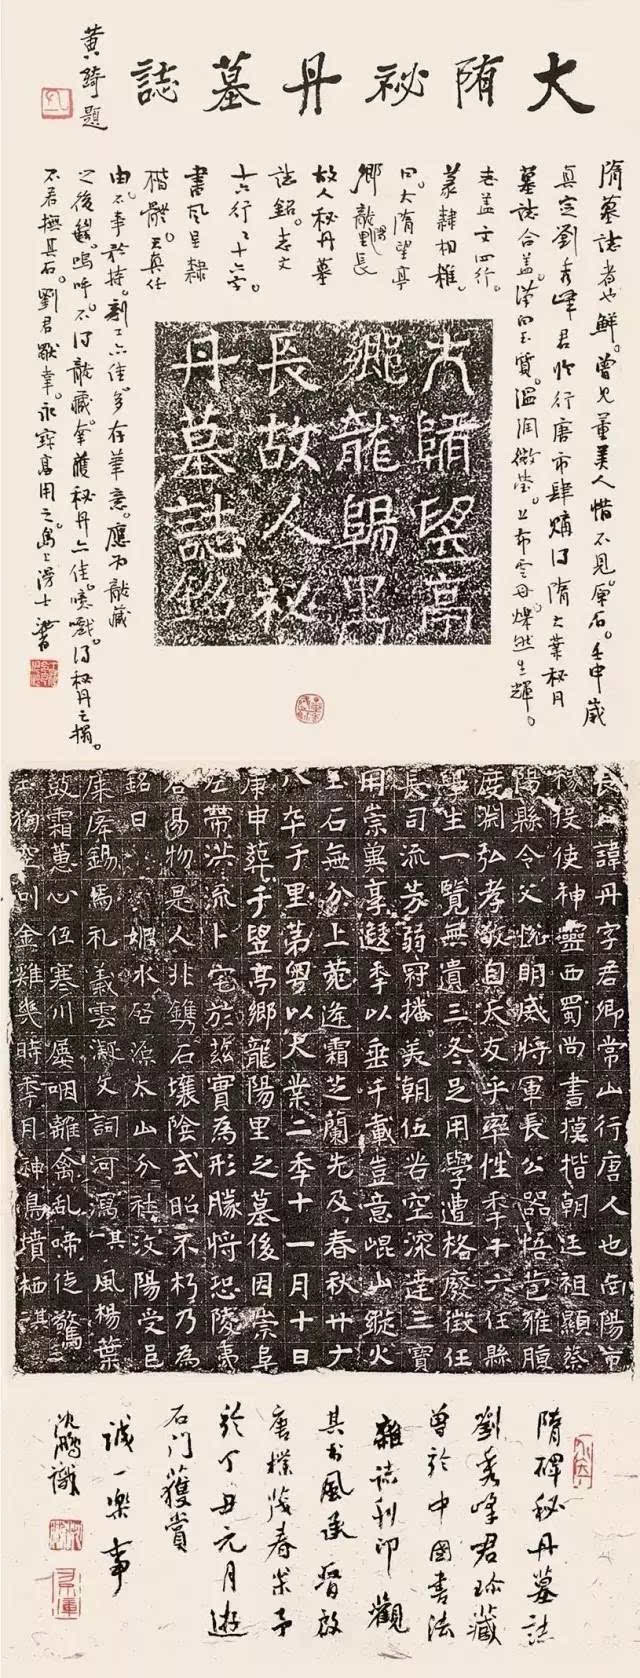 大隋祕丹墓誌
黄绮题
隋墓誌者也鮮。曾見董美人惜不見原石。壬申歲
真定劉秀峰君於行唐市肆購得隋大業秘丹
墓誌合蓋。漢白玉質。溫潤微瑩。上布雲母燦然生輝。
志蓋文四行。
篆隸相雜。
曰。大隋望亭
鄉龍陽里長
故人秘丹墓
誌銘。志文
十六行行十六字。
書風呈隸
楷體。天真任
由。不事矜持。刻工亦佳。多存筆意。應為龍藏
之後
嗚呼。不得龍藏。拿獲秘丹亦佳。噫嘻。得秘丹之搨。
不若撫其石。劉君
永寶享用之。
大隋望亭
鄉龍陽里
長故人祕
丹墓誌銘
長
諱丹字君卿常山行唐人也
陽
使神靈西蜀尚書模楷朝廷祖顯蔡
陽縣令父悦明威將軍長公器悟苞雅腹
度淵弘孝敬自天友乎率性年廿六任縣
學生一覽無遺三冬足用學遭格廢徵任
長司流芳
播美朝伍
空深達三寶
用崇冀享遐季以垂千載豈意崐山縱火
玉石無分上菀
霜芝蘭先及春秋卅
八卒于里第粵以大業二季十一月十日
庚申葬于望亭鄉龍陽里之墓後因崇阜
左帶洪流卜宅於兹實為形勝將恐陵夷
谷易物是人非鐫石壤陰式昭不朽乃為
銘曰
媯水啓源太山分社汶陽受邑
康
錫馬礼義雲凝文詞河瀉其風楊葉
鼓霜蕙心伍寒川屢咽離禽乱啼
驚
狗空叫金雞幾時季月神鳥墳栖其
隋碑秘丹墓誌
劉秀峰君珍藏
曾於中國書法
雜誌刊印觀
其書風承晉啟
唐樸茂春容予
於丁丑元月遊
石门獲賞
誠一樂事
沈鵬識